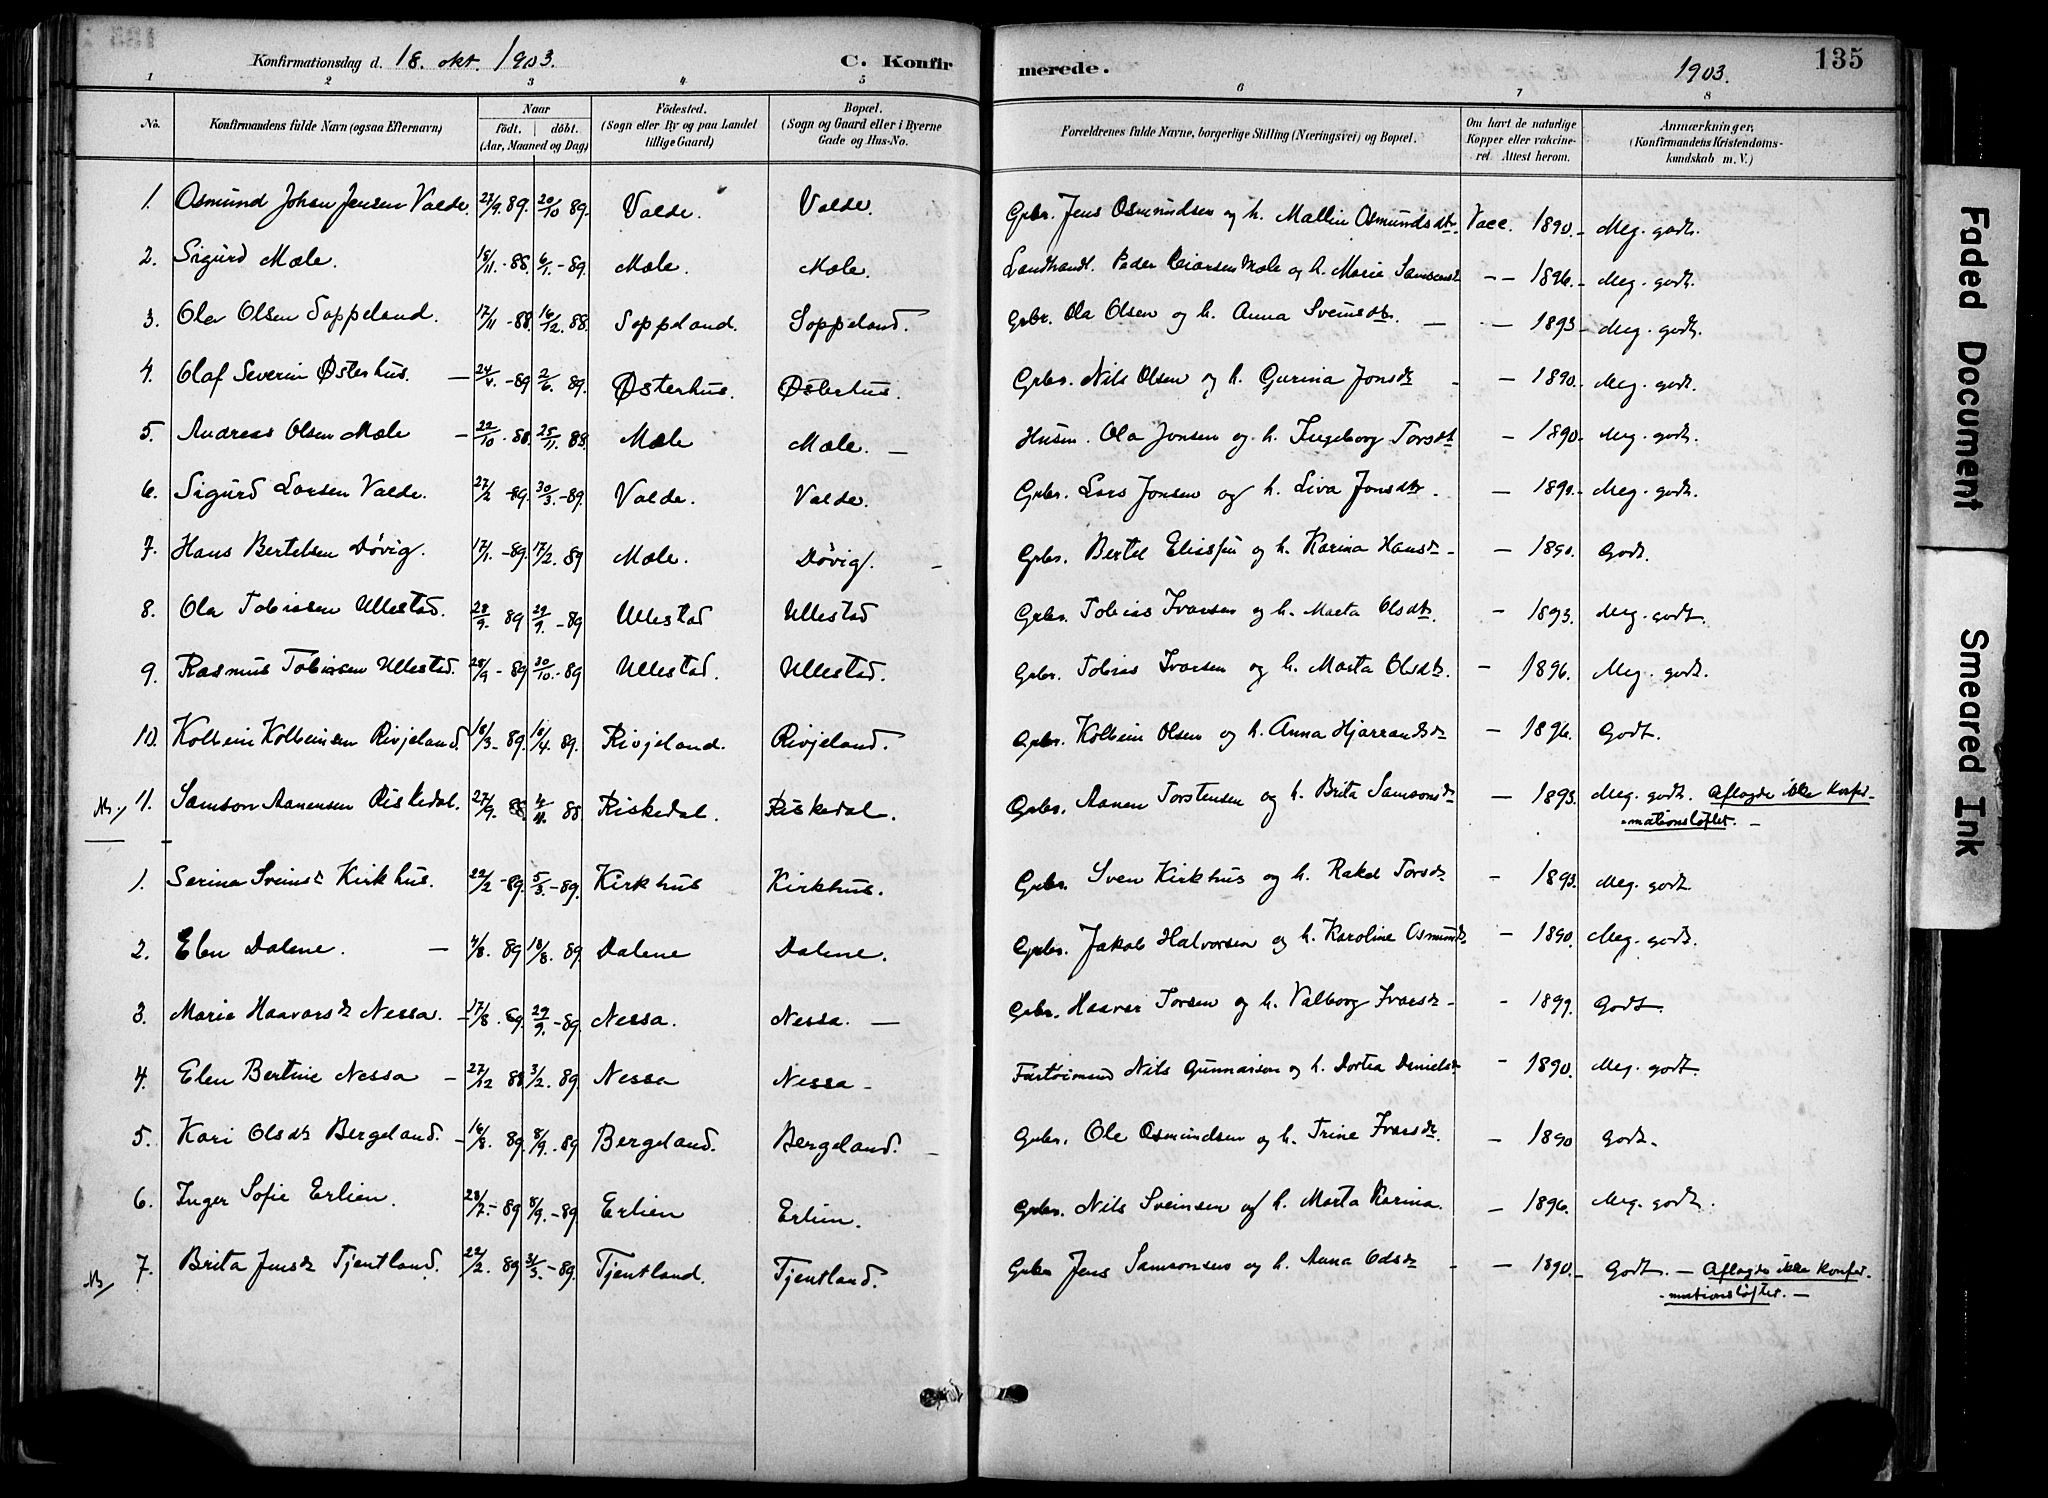 Konfirmationsdag d. 18. okt. 1903. C. Konfirmerede. 1903. 135
1 2 3 4 5 6 7 8
No. Konfirmandens fulde Navn (ogsaa Efternavn) Naar födt. döbt. (Aar, Maaned og Dag) Födested. (Sogn eller By og paa Landet tillige Gaard) Bopæl. (Sogn og Gaard eller i Byerne Gade og Hus-No. Forældrenes fulde Navne, borgerlige Stilling (Næringsvei) og Bopæl. Om havt de naturlige Kopper eller vakcineret Attest herom. Anmærkninger, (Konfirmandens Kristendomskundskab m. V.)
1. Osmund Johan Jensen Valde. 27/9. 89. 20/10 89. Valde. Valde. Grbr. Jens Osmundsen og h. Mallin Osmundsdtr. Vacc. 1890. - Meg. godt.
2. Sigurd Mæle. 18/11. - 88. 6/1. - 89. Mæle. Mæle. Landhandl. Peder Mæle og h. Marie - - 1896. - Meg. godt.
3. Ola Olsen Soppeland. 17/11 - 88. 16/12. 88. Soppeland. Soppeland. Grbr. Ola Olsen og h. Anna Sveinsdtr. - - 1893 - Meg. godt.
4. Olaf Severin Østerhus. - 24/4. - 89 2/6. 89. Østerhus. Østerhus. Grbr. Nils Olsen og h. Gurina Jonsdtr - - 1890. Meg. godt.
5. Andreas Olsen Mæle - 22/10 - 88. 25/11. 88. Mæle Mæle. - Husm. Ola Jonsen og h. Ingeborg Torsdtr - 1890 - Meg. godt.
6. Sigurd Larsen Valde. 27/2 - 89. 30/3. - 89. Valde. Valde. Grbr. Lars Jonsen og h. Siva Jonsdtr. - 1890. - Meg. godt.
7. Hans Bertelsen Døvig. 17/1. - 89. 17/2. 89 Mæle. Døvig. - Grbr. Bertel Eliassen og h. Karina Hansdtr - - 1890. Godt.
8. Ola Tobiasen Ullestad. 28/9. 89 29/9. - 89 Ullestad Ullestad Grbr. Tobias Ivarsen og h. Marta Olsdtr. - 1893. Meg. godt.
9. Rasmus Tobiasen Ullestad. 28/9 - 89 20/10. - 89 Ullestad. Ullestad. Grbr. Tobias Ivarsen og h. Marta Olsdtr. - 1896. Meg. godt.
10. Kolbein Kolbeinsen Rivjeland. 18/3 - 89. 18/4. 89. Rivjeland. Rivjeland. Grbr. Kolbein Olsen og h. Anna Hjarrandsdtr - 1896. Godt.
Nb/ 11. Samson Aanensen Riskedal. 27/9. 88. 4/11. 88 Riskedal. Riskedal. Grbr. Aanen Torstensen og h. Brita Samsonsdtr - 1893. Meg. godt. Aflagde ikke Konfir-
mationsløftet. -
1. Serina Sveinsdtr Kirkhus. 22/2 - 89. 5/3. - 89. Kirkhus Kirkhus. Grbr. Sven Kirkhus og h. Rakel Torsdtr - 1893. Meg. godt.
2. Elen Dalene. - 4/8. 89 18/8. 89 Dalene Dalene. Grbr. Jakob Halvorsen og h. Karoline Osmundsdtr - 1890. Meg. godt.
3. Marie Haavarsdtr Nessa. - 17/8. 89. 29/9. - 89. Nessa. Nessa. - Grbr. Haavar Torsen og h. Valborg Ivarsdtr - - 1899. Godt.
4. Elen Bertine Nessa - 27/12 88 3/2. 89 Nessa Nessa - Nils Gunnarson og h. Dortea Danielsdtr - 1890. Meg. godt.
5. Kari Olsdtr Bergeland. - 16/8. 89. 8/9. - 89 Bergeland. Bergeland. - Grbr. Ole Osmundsen og h. Trine Ivarsdtr. - 1890 Godt.
6. Inger Sofie Erlien. 28/7. - 89 8/9. - 89 Erlien Erlien. Grbr. Nils Sveinsen og h. Marta Karina. - 1896. Meg. godt.
Nb/ 7. Brita Jensdtr Tjentland. 22/2. 89 31/3. - 89. Tjentland. Tjentland. Grbr Jens Samsonsen og h. Anna Odsdtr - - 1890. - Godt. - Aflagde ikke Konfir-
mationsløftet. -
Faded Document
Smeared Ink